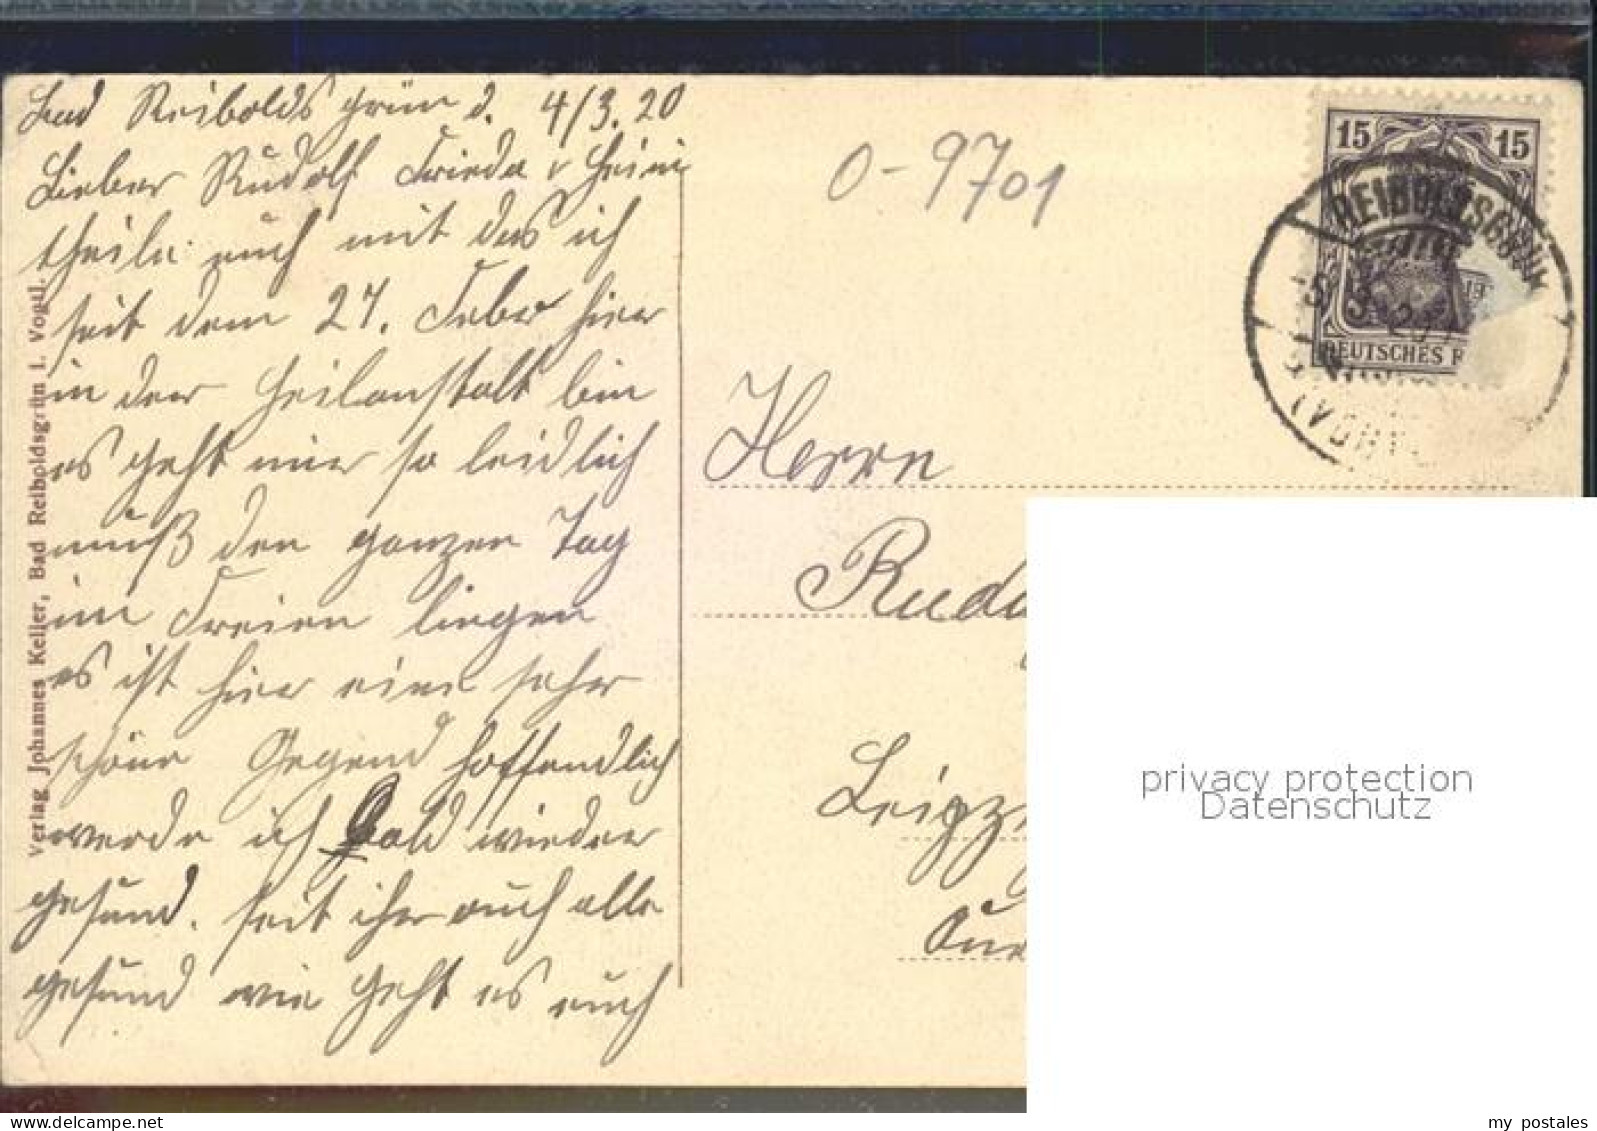 Bad Reiboldsgrün d. 4/3.20
Lieber Rudolf Frieda u Heini
theile euch mit das ich
seit dem 27. Feber hier
in der Heilanstalt bin
es geht mir so leidlich
muß den ganzen Tag
im Freien liegen
es ist hier eine sehr
schöne Gegend hoffendlich
werde ich bald wieder
gesund. seit ihr auch alle
gesund wie geht es euch
Verlag Johannes Keller, Bad Reiboldsgrün i. Vogtl.
0-9701
15 15
DEUTSCHES R
REIBOLDSGRÜN
Herrn
Rud
Leipz
privacy protection
Datenschutz
my postales